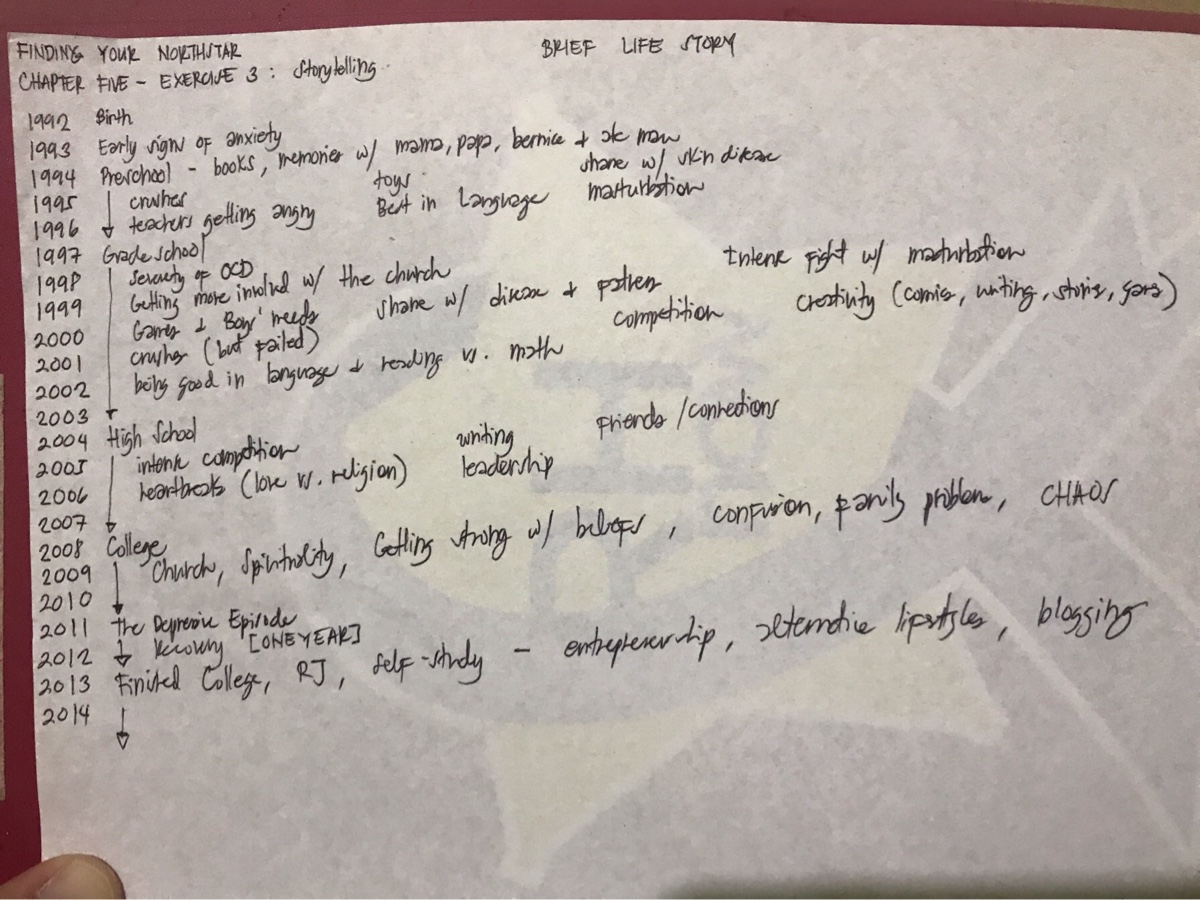 FINDING YOUR NORTHSTAR
BRIEF LIFE STORY
CHAPTER FIVE - EXERCISE 3 : Storytelling
1992 Birth
1993 Early signs of anxiety
1994 Preschool - books, memories w/ mama, papa, bernice +
toys
shame w/ skin disease
1995 crushes
Best in Language
masturbation
1996 teachers getting angry
1997 Grade school
1998 severity of OCD
Intense fight w/ masturbation
1999 Getting more involved w/ the church
2000 Games + Boys' needs
shame w/ disease +
creativity (comics, writing, stories,
2001 crushes (but failed)
competition
2002 being good in language + reading vs. math
2003
2004 High School
writing
friends / connections
2005 intense competition
leadership
2006 heartbreaks (love vs. religion)
2007
2008 College
2009 Church, Spirituality, Getting strong w/ beliefs, confusion, family problem, CHAOS
2010
2011 The Depressive Episode
2012 Recovery [ONE YEAR]
2013 Finished College, RJ, self-study - entrepreneurship, alternative lifestyles, blogging
2014